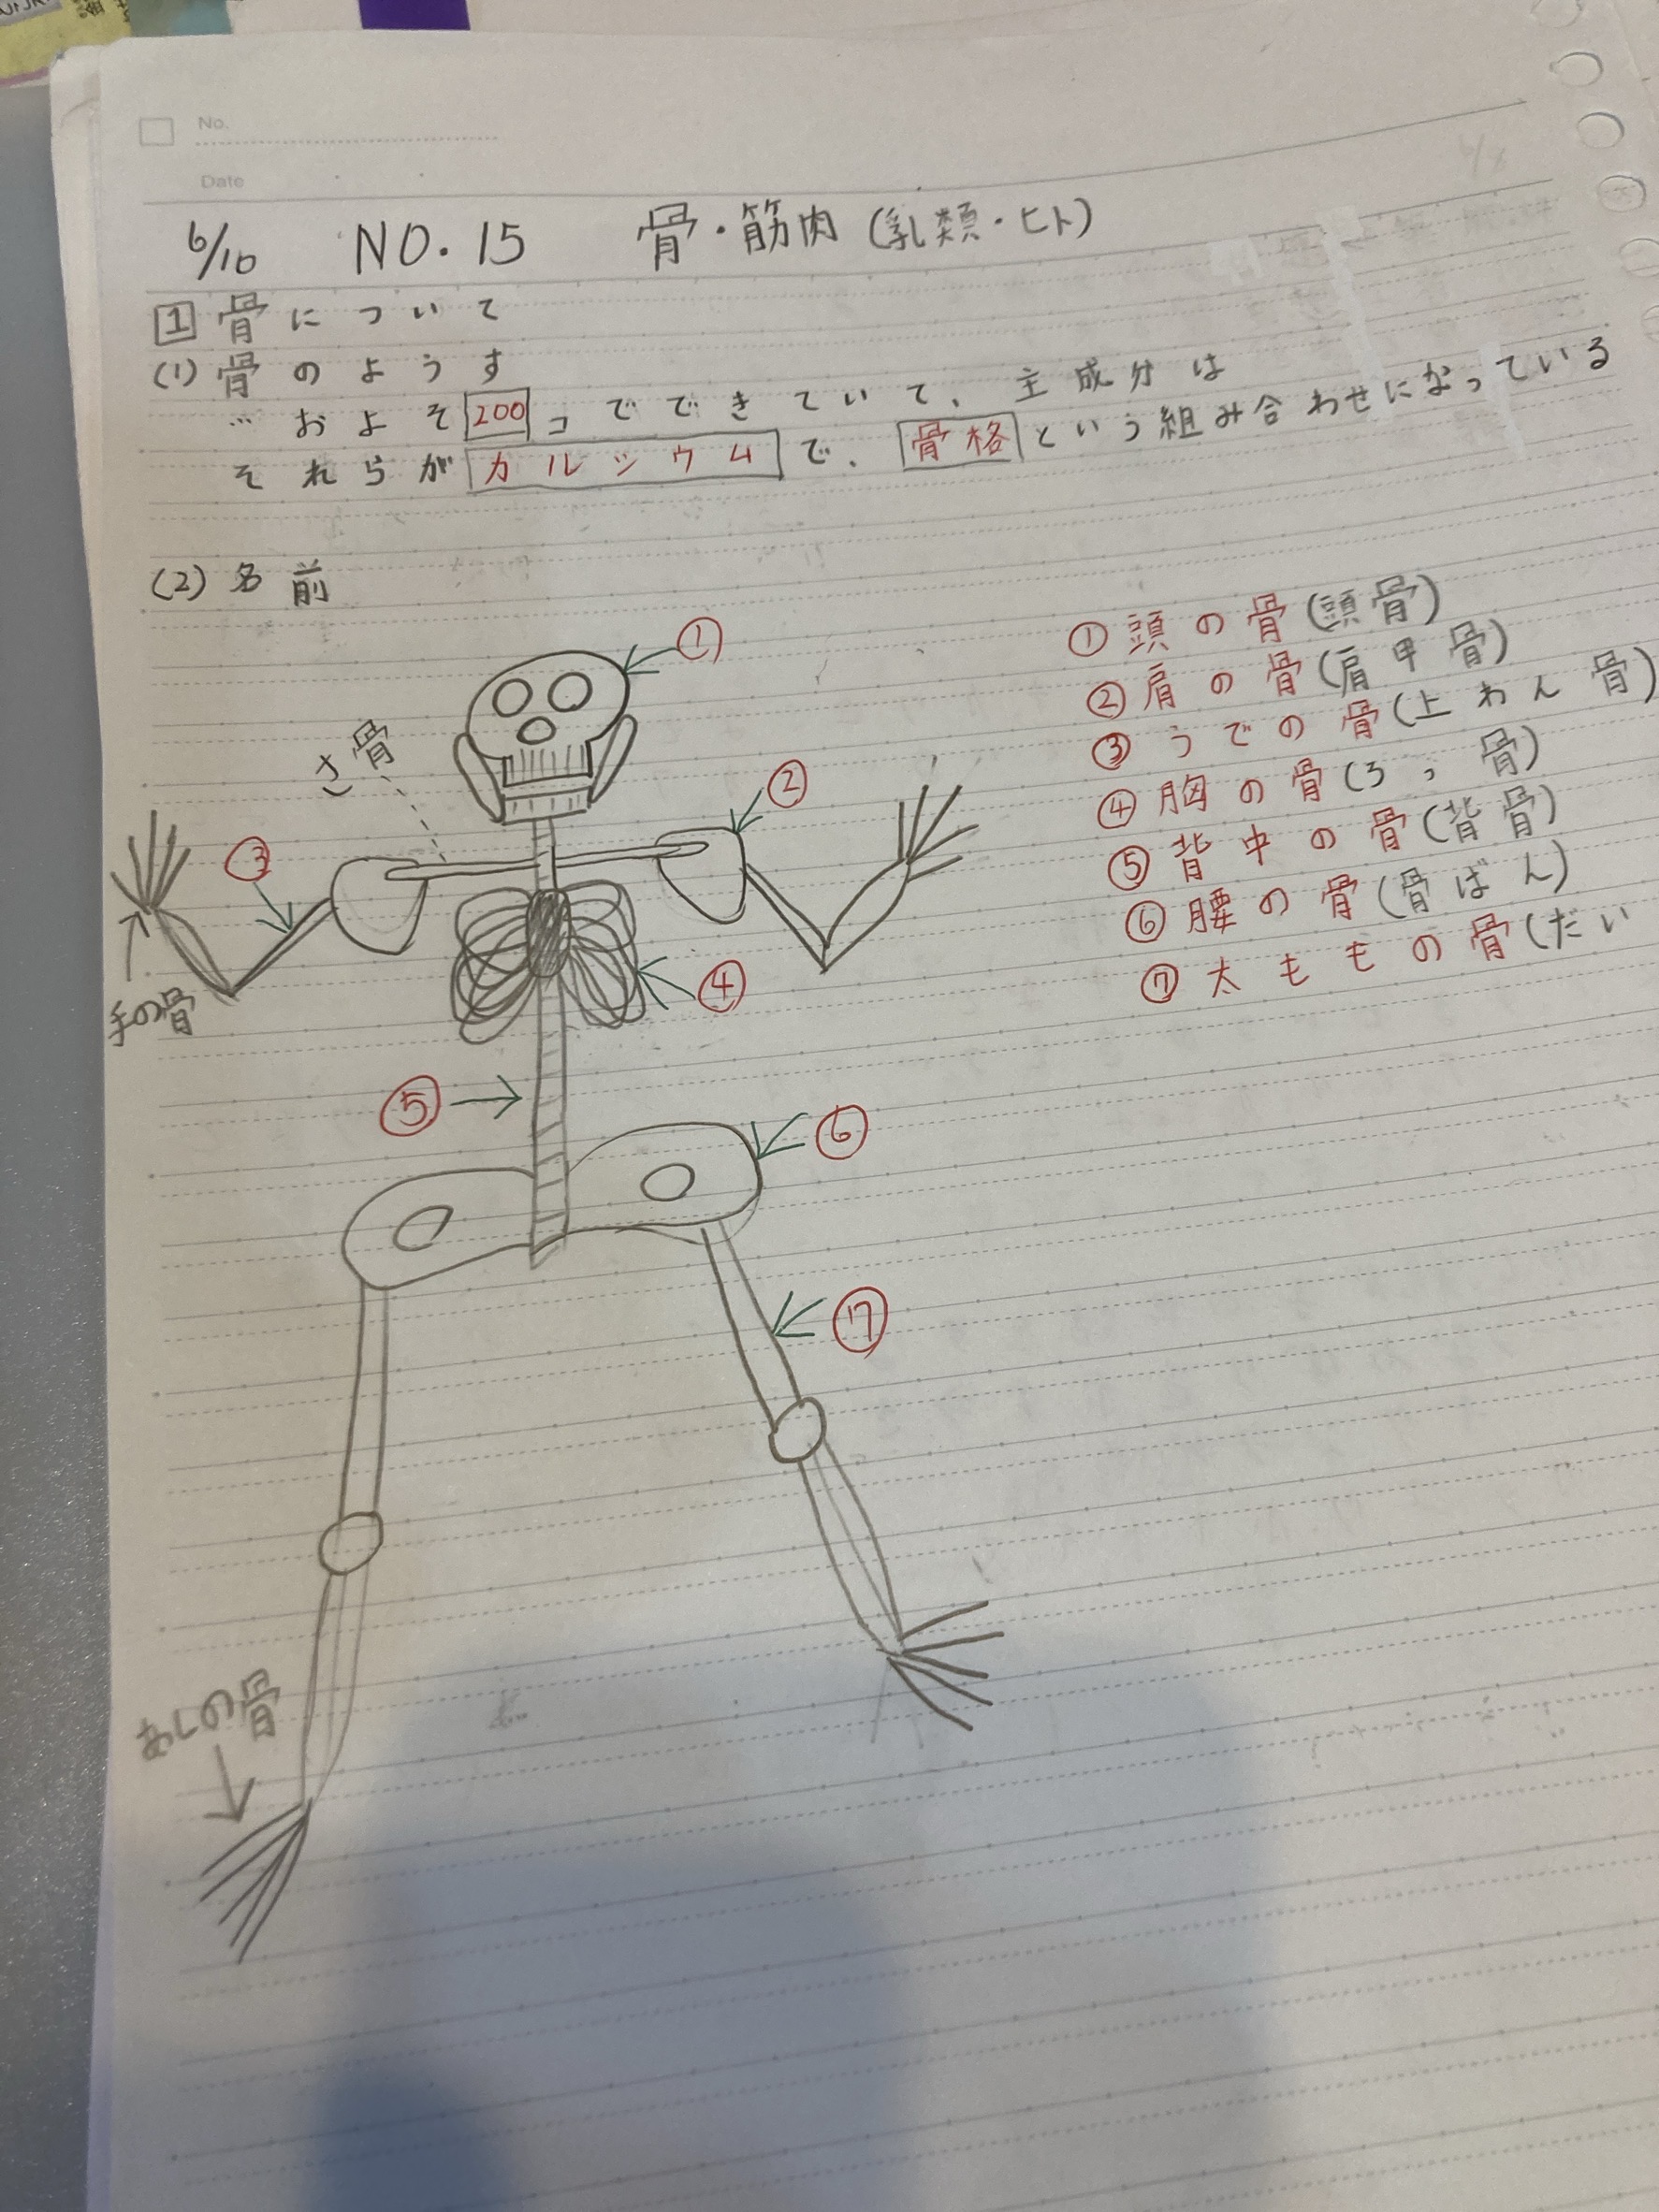 No.
Date
6/10 NO.15 骨・筋肉(乳類・ヒト)
1 骨について
(1) 骨のようす
… およそ 200 コでできていて、主成分は
それらが カルシウム で、骨格 という組み合わせになっている
(2) 名前
① 頭の骨(頭骨)
② 肩の骨(肩甲骨)
③ うでの骨(上わん骨)
④ 胸の骨(ろっ骨)
⑤ 背中の骨(背骨)
⑥ 腰の骨(骨ばん)
⑦ 太ももの骨(だい
①
さ骨
②
③
手の骨
④
⑤
⑥
⑦
あしの骨